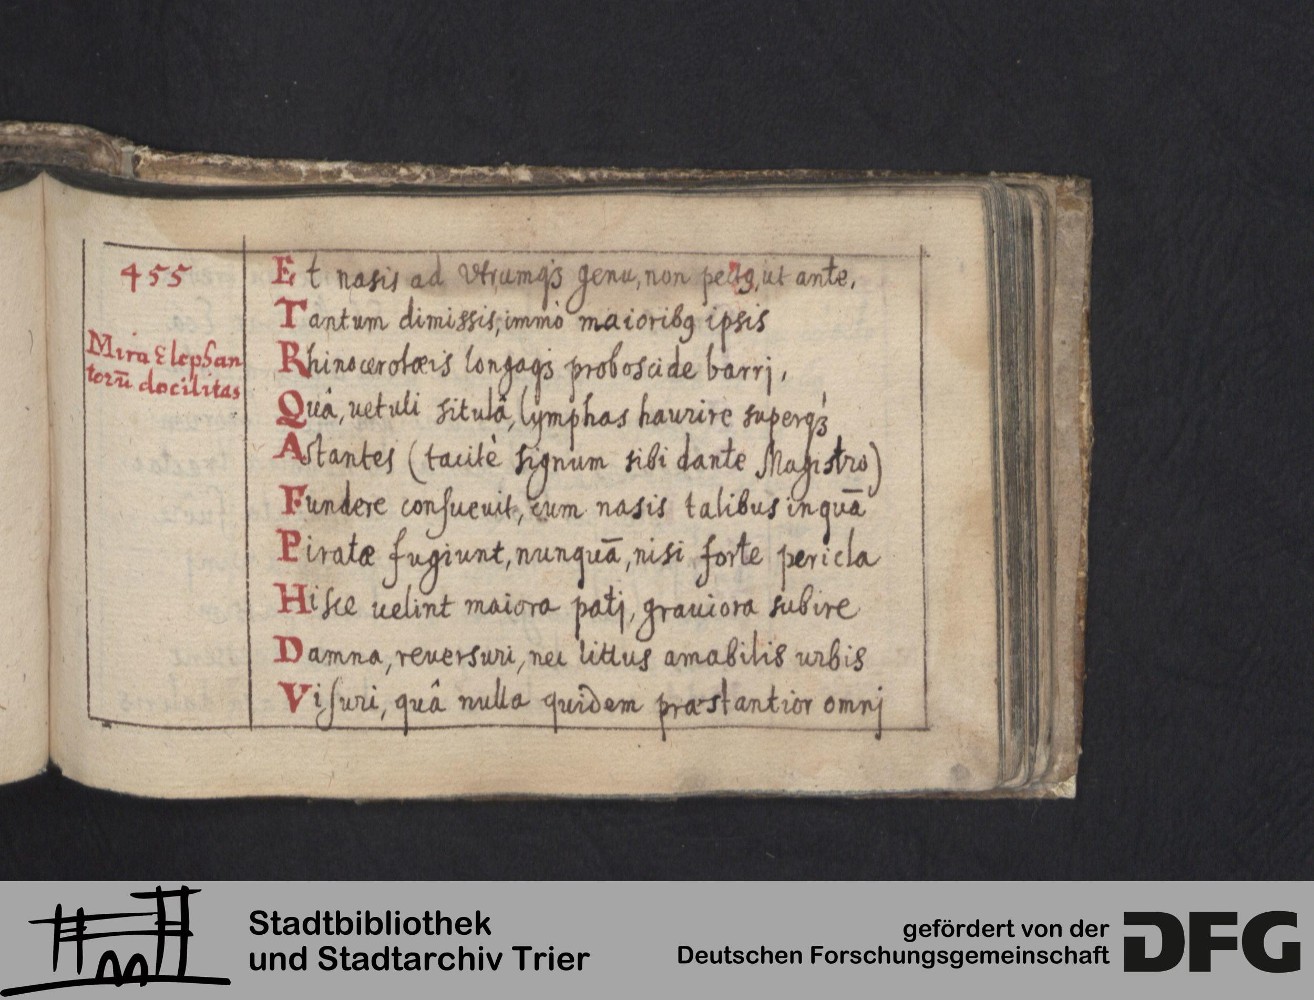 455
Mira Elephan
torũ docilitas
Et nasis ad vtrumq́3 genu, non pect9, ut ante,
Tantum dimissis, immò maiorib9 ipsis
Rhinocerotæis longaq́3 proboscide barrj,
Quâ, uetuli situlâ, lymphas haurire superq́3
Astantes (tacitè signum sibi dante Magistro)
Fundere consueuit, cum nasis talibus inquã
Piratæ fugiunt, nunquã, nisi forte pericla
Hisce uelint maiora patj, grauiora subire
Damna, reuersuri, nec littus amabilis urbis
Visuri, quâ nulla quidem præstantior omnj
Stadtbibliothek
und Stadtarchiv Trier
gefördert von der
Deutschen Forschungsgemeinschaft
DFG